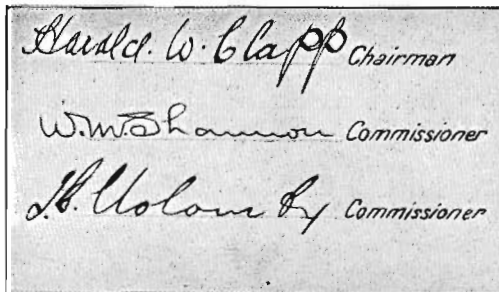 Harold. W. Clapp Chairman
W. M. Shannon Commissioner
T. B. Molomby Commissioner